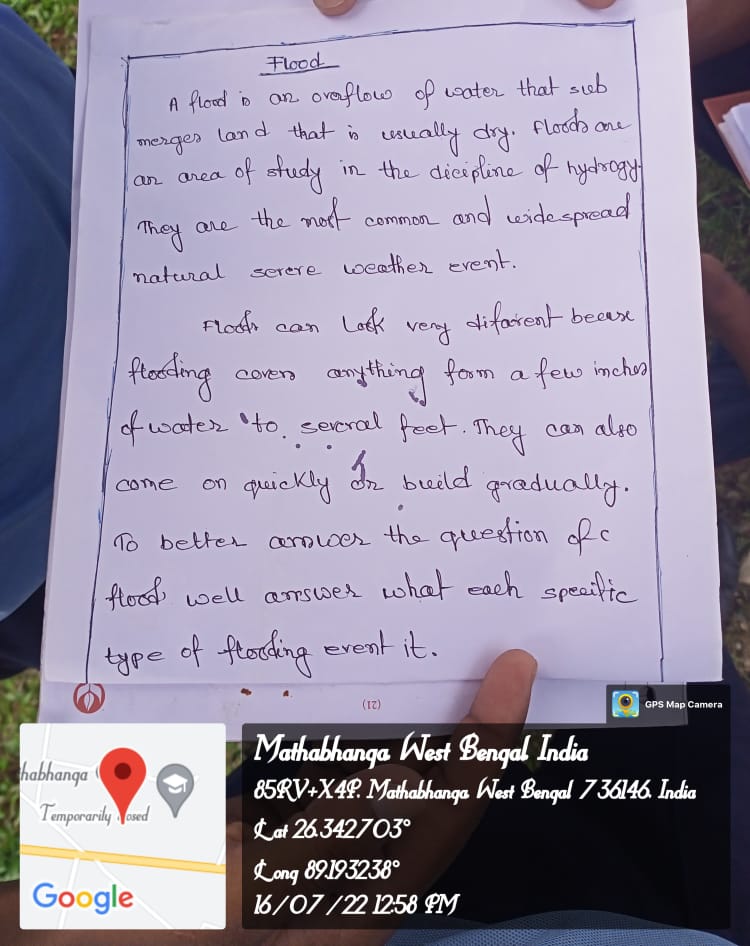 Flood
A flood is an overflow of water that sub
merges land that is usually dry. Floods are
an area of study in the dicipline of hydrogy.
They are the most common and widespread
natural severe weather event.
Floods can look very difarent becuse
flooding covers anything form a few inches
of water to several feet. They can also
come on quickly or build gradually.
To better answer the question of c
flood well answer what each specific
type of flooding event it.
(21)
GPS Map Camera
habhanga
Temporarily osed
Google
Mathabhanga West Bengal India
85RV+X4P. Mathabhanga West Bengal 736146. India
Lat 26.342703°
Long 89.193238°
16/07/22 12:58 PM